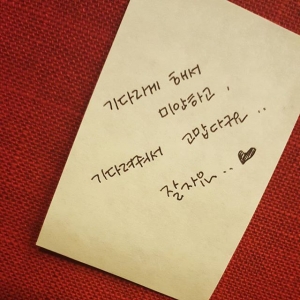 기다리게 해서
미안하고,
기다려줘서 고맙다귀..
잘자유.. ♥